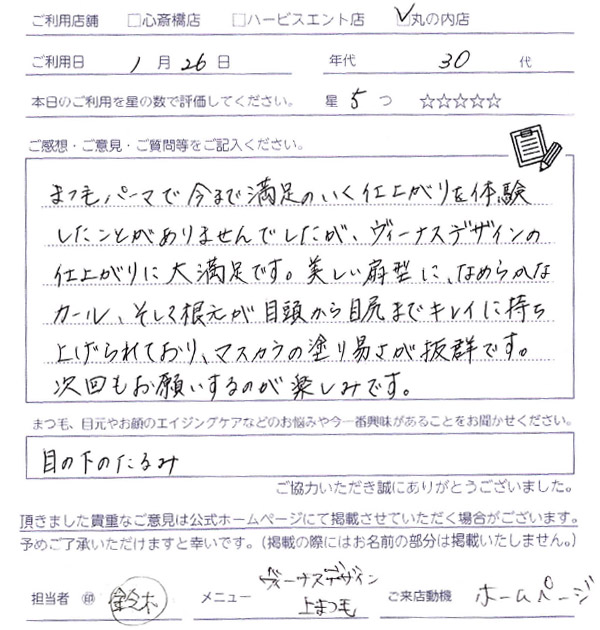 ご利用店舗 □心斎橋店 □ハービスエント店 ☑丸の内店
ご利用日 1月26日 年代 30代
本日のご利用を星の数で評価してください。 星5つ ☆☆☆☆☆
ご感想・ご意見・ご質問等をご記入ください。
まつ毛パーマで今まで満足のいく仕上がりを体験
したことがありませんでしたが、ヴィーナスデザインの
仕上がりに大満足です。美しい扇型に、なめらかな
カール、そして根元が目頭から目尻までキレイに持ち
上げられており、マスカラの塗り易さが抜群です。
次回もお願いするのが楽しみです。
まつ毛、目元やお顔のエイジングケアなどのお悩みや今一番興味があることをお聞かせください。
目の下のたるみ
ご協力いただき誠にありがとうございました。
頂きました貴重なご意見は公式ホームページにて掲載させていただく場合がございます。
予めご了承いただけますと幸いです。（掲載の際にはお名前の部分は掲載いたしません。）
担当者 ㊞ 鈴木 メニュー ヴィーナスデザイン
上まつ毛 ご来店動機 ホームページ